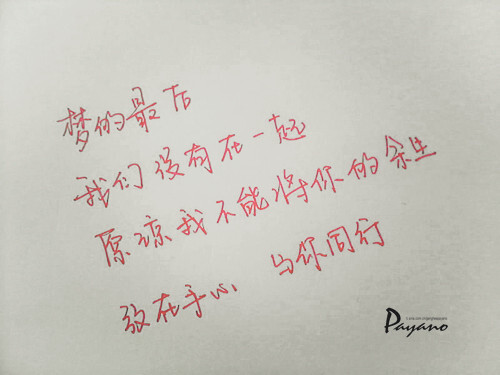 梦的最后
我们没有在一起
原谅我不能将你的余生
放在手心 与你同行
Payano